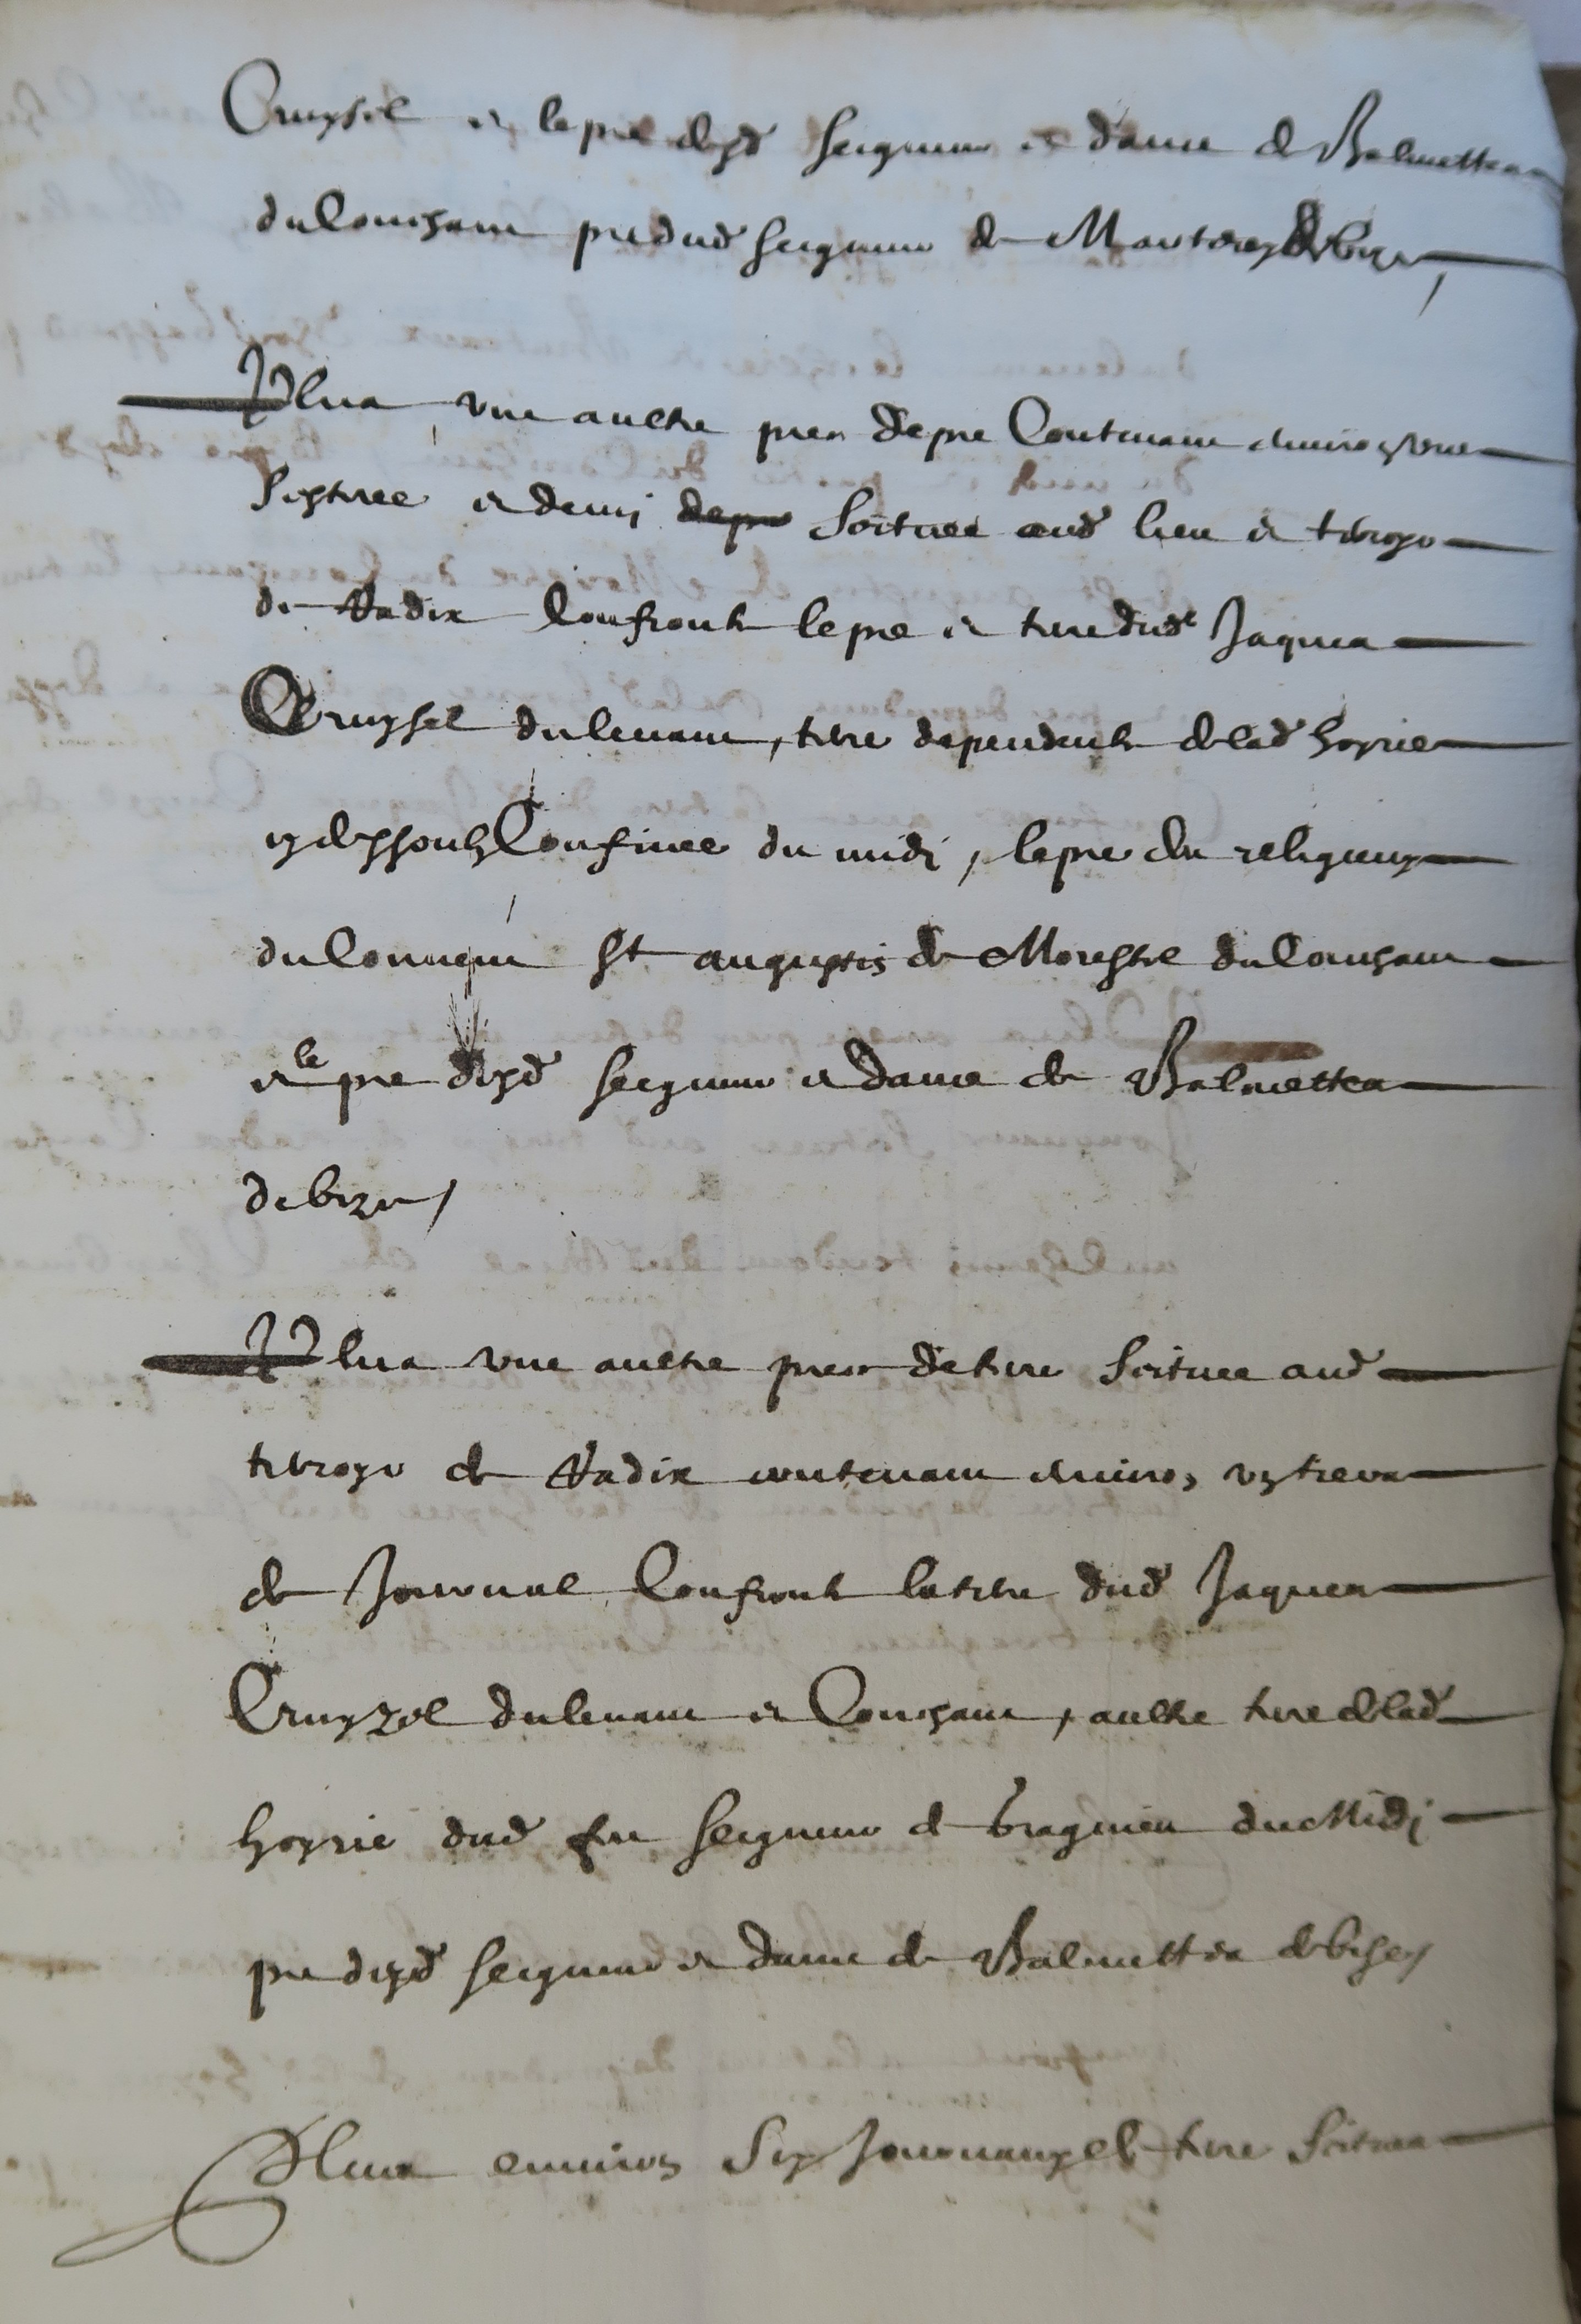 Cruysel et le pre desd seigneur et dame de Balmettes
du Couchant pre dud seigneur de de bize
Plus une aultre piece de pre Contenant environ une
seytiree et demi scituee aud lieu et terroyr
de Vadix Confronte le pre et terre dudt Jaques
Cruysel du levant, terre dependente de lad hoyrie
cy dessoubz Confinee du midi, le pre des religieux
du Convent St augustin de Morestel du Couchant
et le pre desd seigneur et dame de Balmettes
de bize /
Plus une aultre piece de terre scituee aud
terroyr de Vadix contenant environ
de Journal Confronte la terre dud Jaques
Cruyzel du levant et Couchant, aultre terre de lad
hoyrie dud feu seigneur de bragnieu du Midi
pre desd seigneur et dame de Balmettes de bise /
Plus environ six Journaux de terre scitues